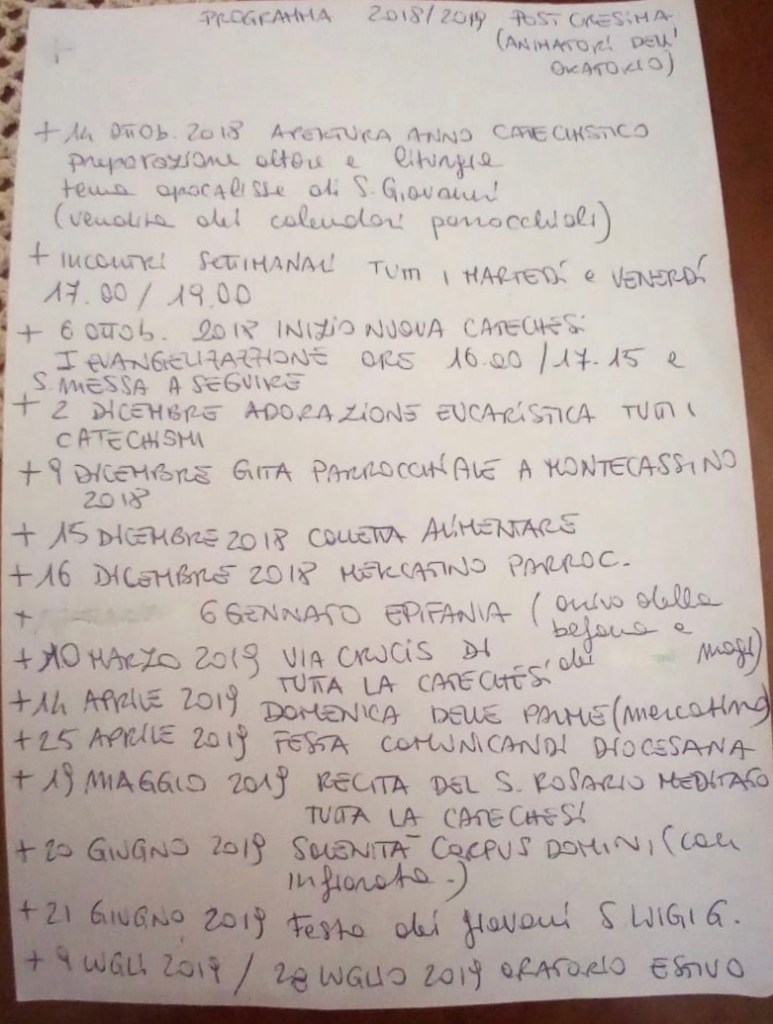 PROGRAMMA 2018/2019 POST CRESIMA
(ANIMATORI DELL'
ORATORIO)
+ 14 OTTOB. 2018 APERTURA ANNO CATECHISTICO
preparazione altare e liturgia
tema apocalisse di S. Giovanni
(vendita dei calendari parrocchiali)
+ INCONTRI SETTIMANALI TUTTI I MARTEDÌ e VENERDÌ
17.00 / 19.00
+ 6 OTTOB. 2018 INIZIO NUOVA CATECHESI
I EVANGELIZAZZIONE ORE 16.00 / 17.15 e
S. MESSA A SEGUIRE
+ 2 DICEMBRE ADORAZIONE EUCARISTICA TUTTI I
CATECHISMI
+ 9 DICEMBRE GITA PARROCCHIALE A MONTECASSINO
2018
+ 15 DICEMBRE 2018 COLLETTA ALIMENTARE
+ 16 DICEMBRE 2018 MERCATINO PARROC.
+ 6 GENNAIO EPIFANIA (arrivo della
befana e
dei magi)
+ 10 MARZO 2019 VIA CRUCIS DI
TUTTA LA CATECHESI
+ 14 APRILE 2019 DOMENICA DELLE PALME (mercatino)
+ 25 APRILE 2019 FESTA COMUNICANDI DIOCESANA
+ 19 MAGGIO 2019 RECITA DEL S. ROSARIO MEDITATO
TUTTA LA CATECHESI
+ 20 GIUGNO 2019 SOLENITÀ CORPUS DOMINI (con
infiorata.)
+ 21 GIUGNO 2019 Festa dei giovani S LUIGI G.
+ 9 LUGLI 2019 / 28 LUGLIO 2019 ORATORIO ESTIVO